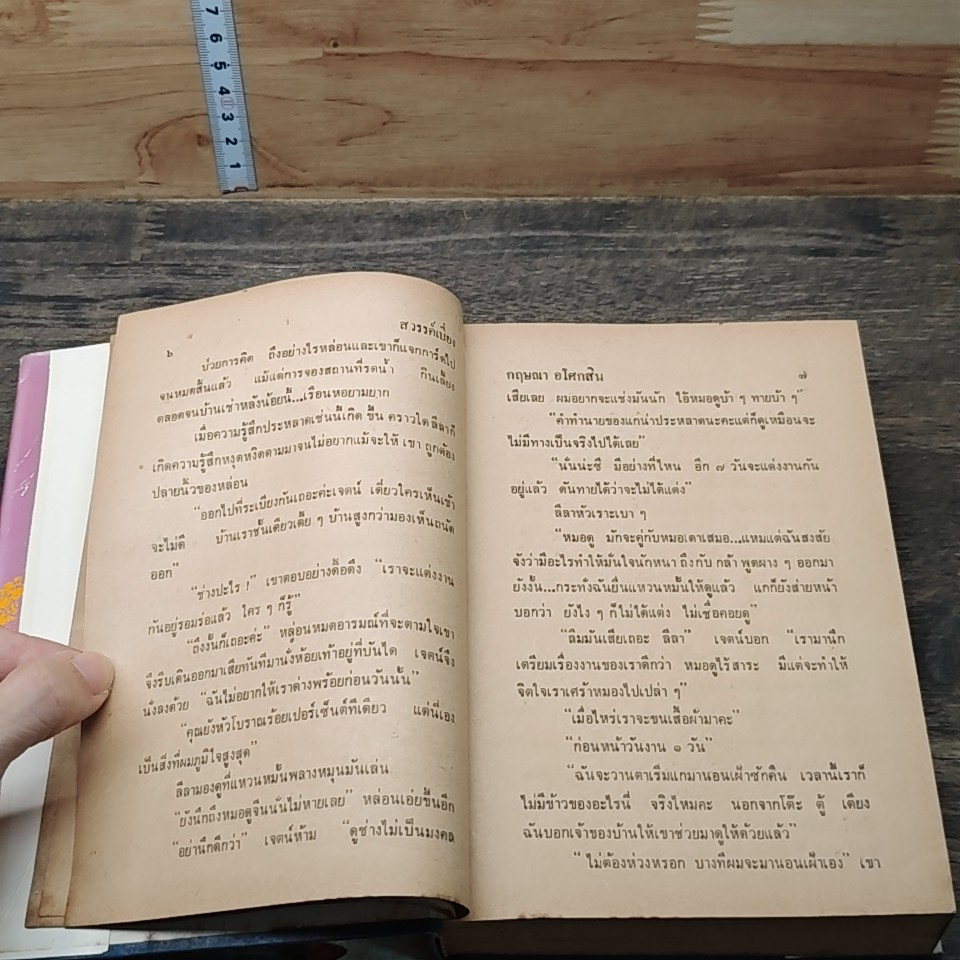 7
6
5
4
3
2
1
สวรรค์เบี่ยง
๖
ป่วยการคิด ถึงอย่างไรหล่อนและเขาก็แจกการ์ดไป
จนหมดสิ้นแล้ว แม้แต่การจองสถานที่รดน้ำ กินเลี้ยง
ตลอดจนบ้านเช่าหลังน้อยนี้...เรือนหอยามยาก
เมื่อความรู้สึกประหลาดเช่นนี้เกิดขึ้น คราวใด ลีลาก็
เกิดความรู้สึกหงุดหงิดตามมาจนไม่อยากแม้จะให้ เขา ถูกต้อง
ปลายนิ้วของหล่อน
“ออกไปที่ระเบียงกันเถอะค่ะเจตน์ เดี๋ยวใครเห็นเข้า
จะไม่ดี บ้านเราชั้นเดียวเตี้ย ๆ บ้านสูงกว่ามองเห็นถนัด
ออก”
“ช่างปะไร !” เขาตอบอย่างดื้อดึง “เราจะแต่งงาน
กันอยู่รอมร่อแล้ว ใคร ๆ ก็รู้”
“ถึงงั้นก็เถอะค่ะ” หล่อนหมดอารมณ์ที่จะตามใจเขา
จึงรีบเดินออกมาเสียทันทีมานั่งห้อยเท้าอยู่ที่บันได เจตน์จึง
นั่งลงด้วย “ฉันไม่อยากให้เราด่างพร้อยก่อนวันนั้น”
“คุณยังหัวโบราณร้อยเปอร์เซ็นต์ทีเดียว แต่นี่เอง
เป็นสิ่งที่ผมภูมิใจสูงสุด”
ลีลามองดูที่แหวนหมั้นพลางหมุนมันเล่น
“ยังนึกถึงหมอดูจีนนั่นไม่หายเลย” หล่อนเอ่ยขึ้นอีก
“อย่านึกดีกว่า” เจตน์ห้าม “ดูช่างไม่เป็นมงคล
กฤษณา อโศกสิน
๗
เสียเลย ผมอยากจะแช่งมันนัก ไอ้หมอดูบ้า ๆ ทายบ้า ๆ”
“คำทำนายของแกน่าประหลาดนะคะแต่ก็ดูเหมือนจะ
ไม่มีทางเป็นจริงไปได้เลย”
“นั่นน่ะซี มีอย่างที่ไหน อีก ๗ วันจะแต่งงานกัน
อยู่แล้ว ดันทายได้ว่าจะไม่ได้แต่ง”
ลีลาหัวเราะเบา ๆ
“หมอดู มักจะคู่กับหมอเดาเสมอ...แหมแต่ฉันสงสัย
จังว่ามีอะไรทำให้มั่นใจนักหนา ถึงกับ กล้า พูดผาง ๆ ออกมา
ยังงั้น...กระทั่งฉันยื่นแหวนหมั้นให้ดูแล้ว แกก็ยังส่ายหน้า
บอกว่า ยังไง ๆ ก็ไม่ได้แต่ง ไม่เชื่อคอยดู”
“ลืมมันเสียเถอะ ลีลา” เจตน์บอก “เรามานึก
เตรียมเรื่องงานของเราดีกว่า หมอดูไร้สาระ มีแต่จะทำให้
จิตใจเราเศร้าหมองไปเปล่า ๆ”
“เมื่อไหร่เราจะขนเสื้อผ้ามาคะ”
“ก่อนหน้าวันงาน ๑ วัน”
“ฉันจะวานตาเริ่มแกมานอนเฝ้าซักคืน เวลานี้เราก็
ไม่มีข้าวของอะไรนี่ จริงไหมคะ นอกจากโต๊ะ ตู้ เตียง
ฉันบอกเจ้าของบ้านให้เขาช่วยมาดูให้ด้วยแล้ว”
“ ไม่ต้องห่วงหรอก บางทีผมจะมานอนเฝ้าเอง” เขา